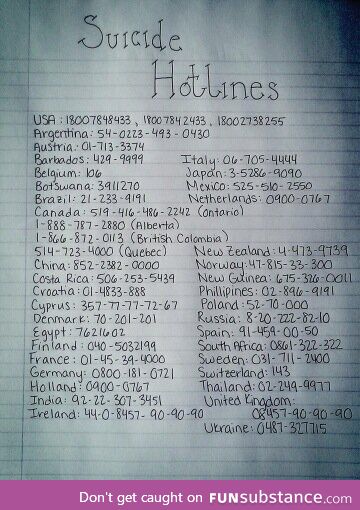 Suicide
Hotlines
USA : 18007848433 , 18007842433 , 18002738255
Argentina: 54-0223-493-0430
Austria: 01-713-3374
Barbados: 429-9999
Belgium: 106
Botswana: 3911270
Brazil: 21-233-9191
Canada: 519-416-486-2242 (Ontario)
1-888-787-2880 (Alberta)
1-866-872-0113 (British Colombia)
514-723-4000 (Quebec)
China: 852-2382-0000
Costa Rica: 506-253-5439
Croatia: 01-4833-888
Cyprus: 357-77-77-72-67
Denmark: 70-201-201
Egypt: 7621602
Finland: 040-5032199
France: 01-45-39-4000
Germany: 0800-181-0721
Holland: 0900-0767
India: 92-22-307-3451
Ireland: 44-0-8457-90-90-90
Italy: 06-705-4444
Japan: 3-5286-9090
Mexico: 525-510-2550
Netherlands: 0900-0767
New Zealand: 4-473-9739
Norway: 47-815-33-300
New Guinea: 675-326-0011
Phillipines: 02-896-9191
Poland: 52-70-000
Russia: 8-20-222-82-10
Spain: 91-459-00-50
South Africa: 0861-322-322
Sweden: 031-711-2400
Switzerland: 143
Thailand: 02-249-9977
United Kingdom:
08457-90-90-90
Ukraine: 0487-327715
Don't get caught on FUNsubstance.com